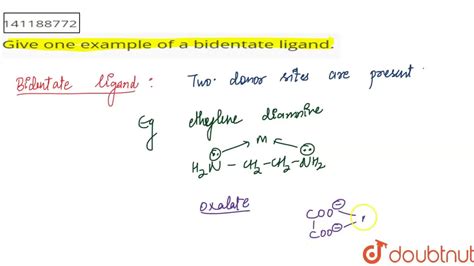 141188772
Give one example of a bidentate ligand.
Bidentate ligand : Two donor sites are present.
Eg ethylene diammine
M
H₂N – CH₂ – CH₂ – NH₂
oxalate
COO⊖
COO⊖
doubtnut